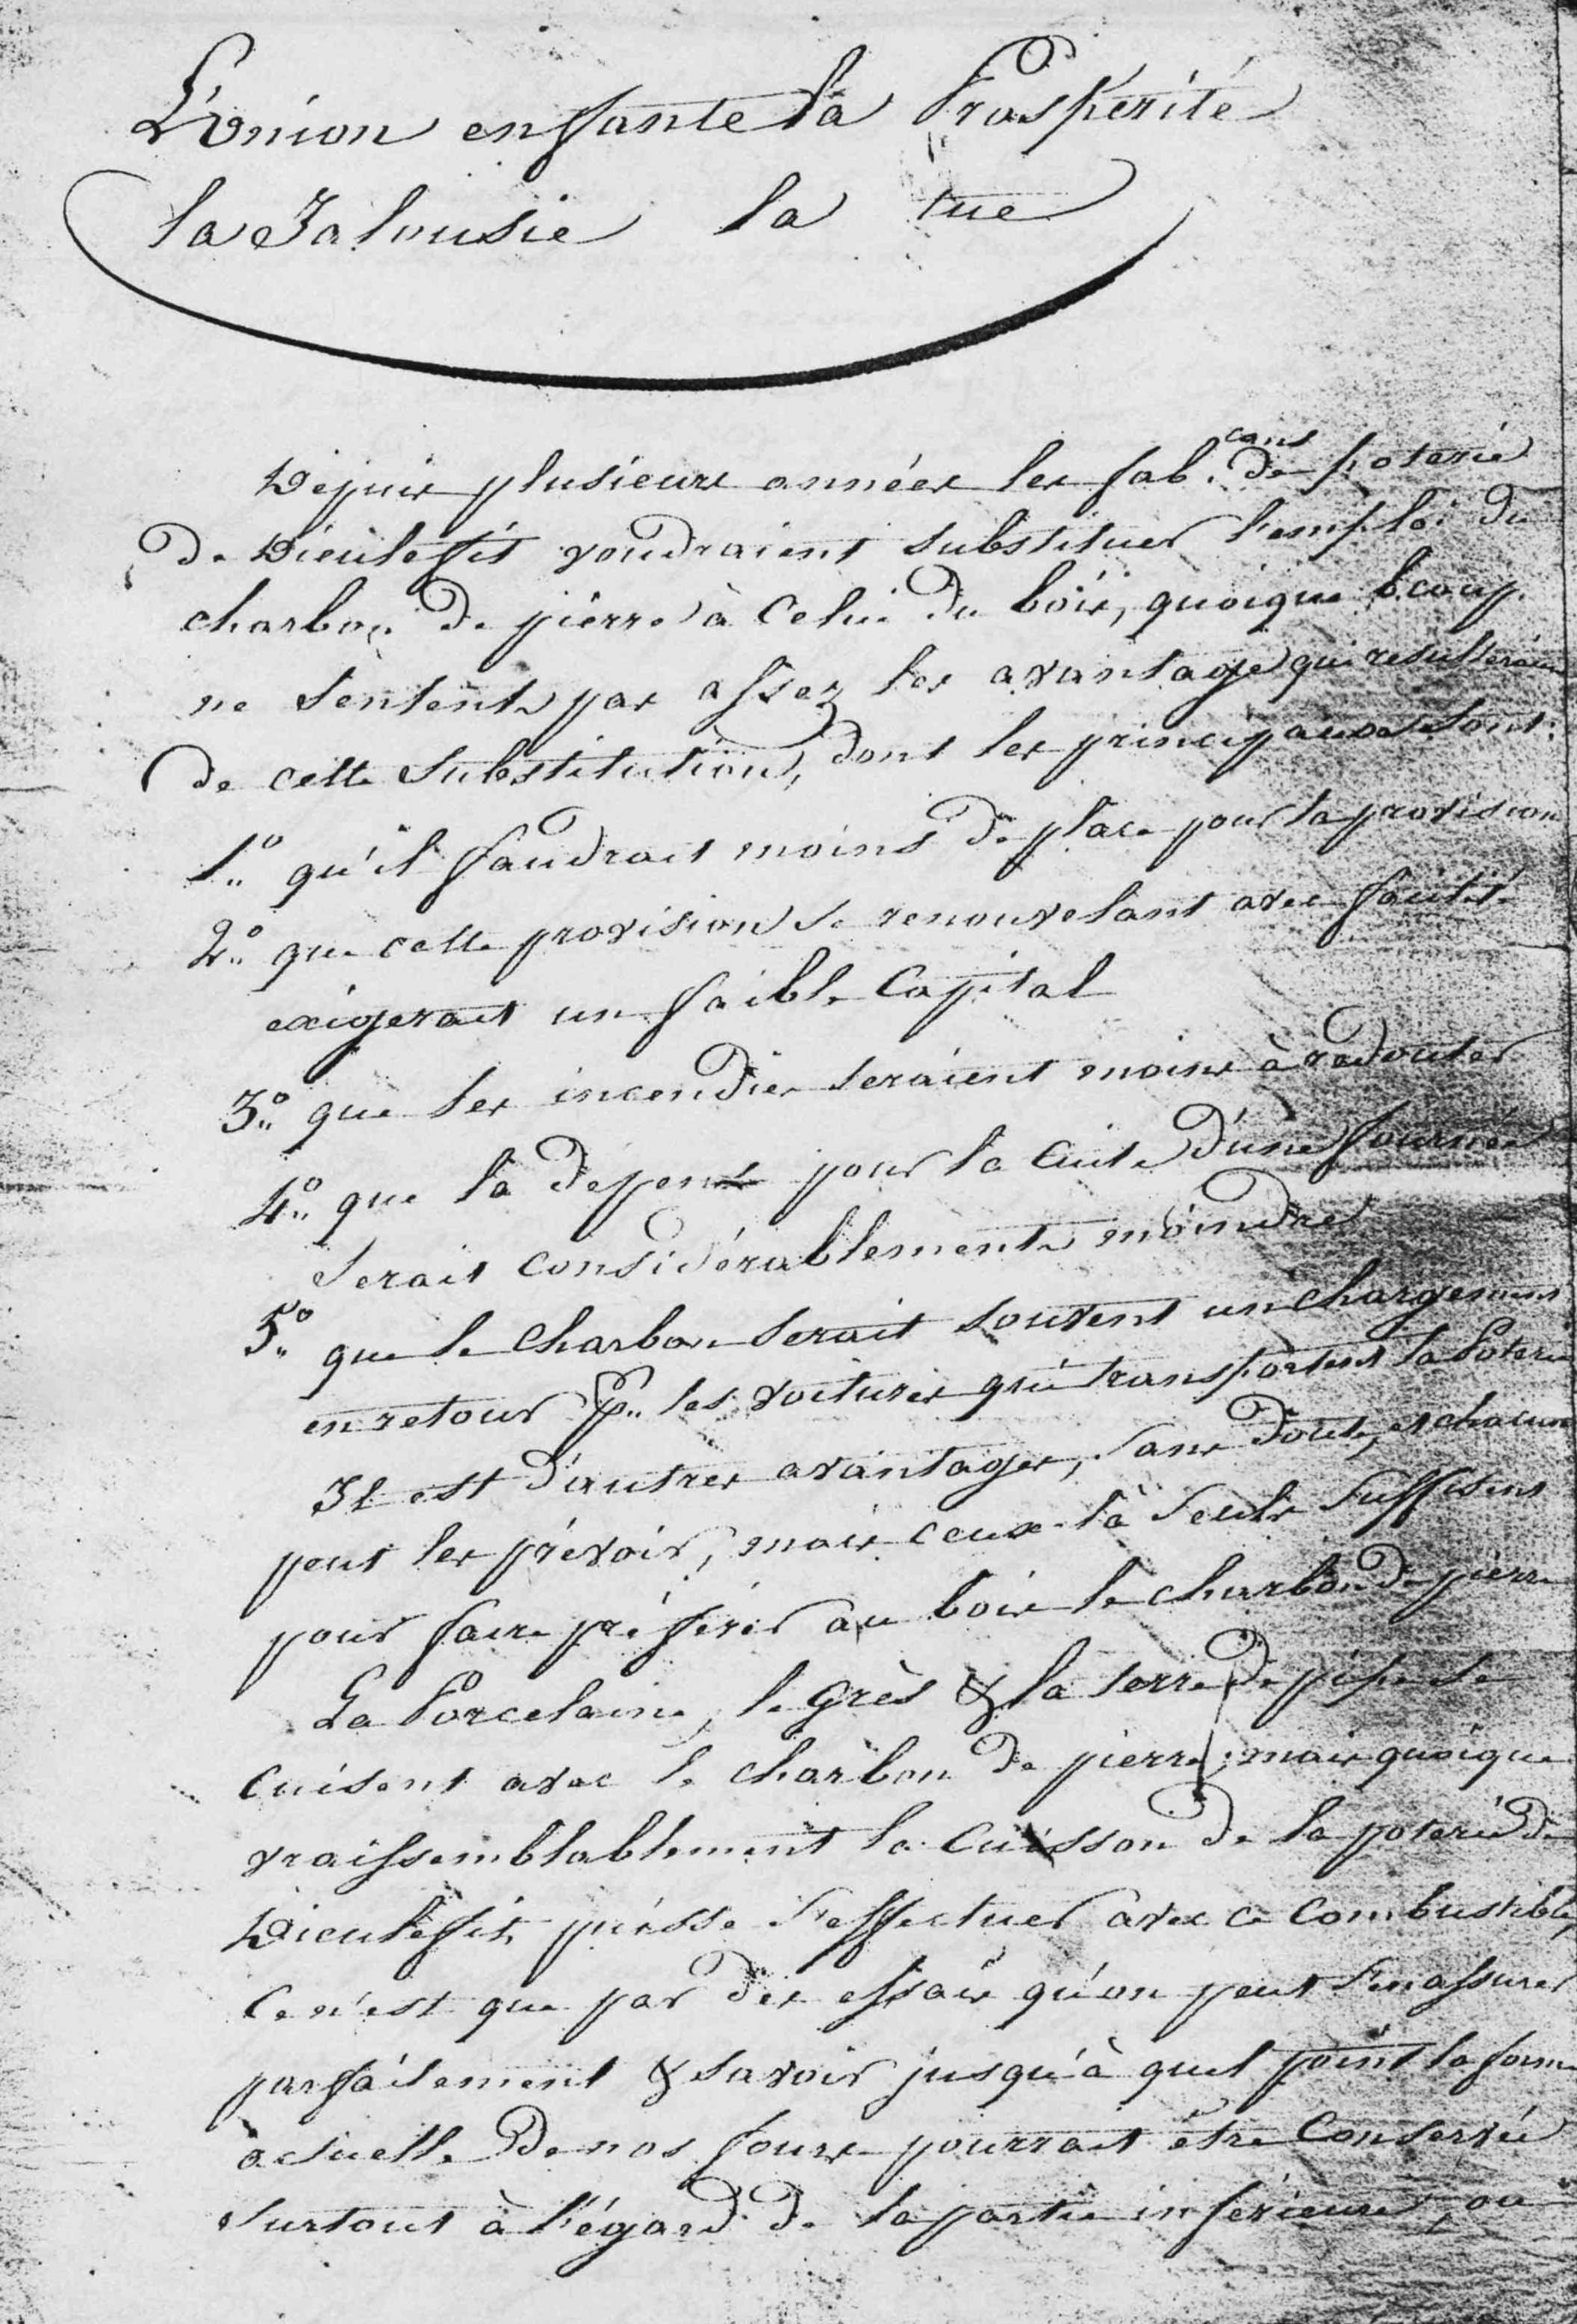 L'Union enfante la Prosperité
la Jalousie la tue
Depuis plusieurs années les fab.cans de poterie
de Dieulefit voudraient substituer l'emploi du
charbon de pierre à celui du bois, quoique bcoup.
ne sentent pas assez les avantage qui resulteraien
de cette substitution, dont les principaux sont:
1.o qu'il faudrait moins de place pour la provision
2.o que cette provision se renouvelant avec facilité
exigerait un faible Capital
3.o que les incendies seraient moins à redouter
4.o que la depense pour la cuite d'une fournée
serait considérablement moindre
5.o que le charbon serait souvent un chargement
en retour pr. les voitures qui transportent la Poterie
Il est d'autres avantages, sans doute, et chacun
peut les prévoir, mais ceux-là seuls suffisent
pour faire préférer au bois le charbon de pierre
La Porcelaine, le grès & la terre de pipe se
cuisent avec le charbon de pierre; mais quoique
vraissemblablement la cuisson de la poterie de
Dieulefit puisse s'effectuer avec ce combustible,
ce n'est que par des essais qu'on peut s'en assurer
parfaitement & savoir jusqu'à quel point la forme
actuelle de nos fours pourrait être conservée
surtout à l'égard de la partie inférieure, ou